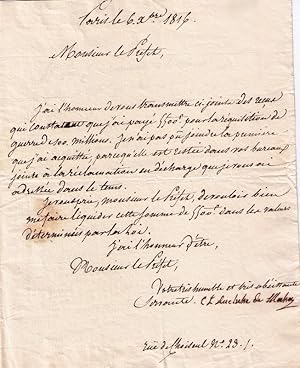 Paris le 6. xbre 1816.
Monsieur le Préfet,
J'ai l'honneur de vous transmettre ci joints des reçus
qui constatent que j'ai payé pour la réquisition de
guerre de 100. millions. Je n'ai pas pu joindre la première
que j'ai acquittée, parce qu'elle est restée dans vos bureaux
jointe à la réclamation en décharge que je vous ai
adressée dans le tems.
Je vous prie, monsieur le Préfet, de vouloir bien
me faire liquider cette somme de dans les valeurs
déterminées par la loi.
J'ai l'honneur d'être,
Monsieur le Préfet,
Votre très humble et très obéissante
servante
rue de Choiseul No. 23.